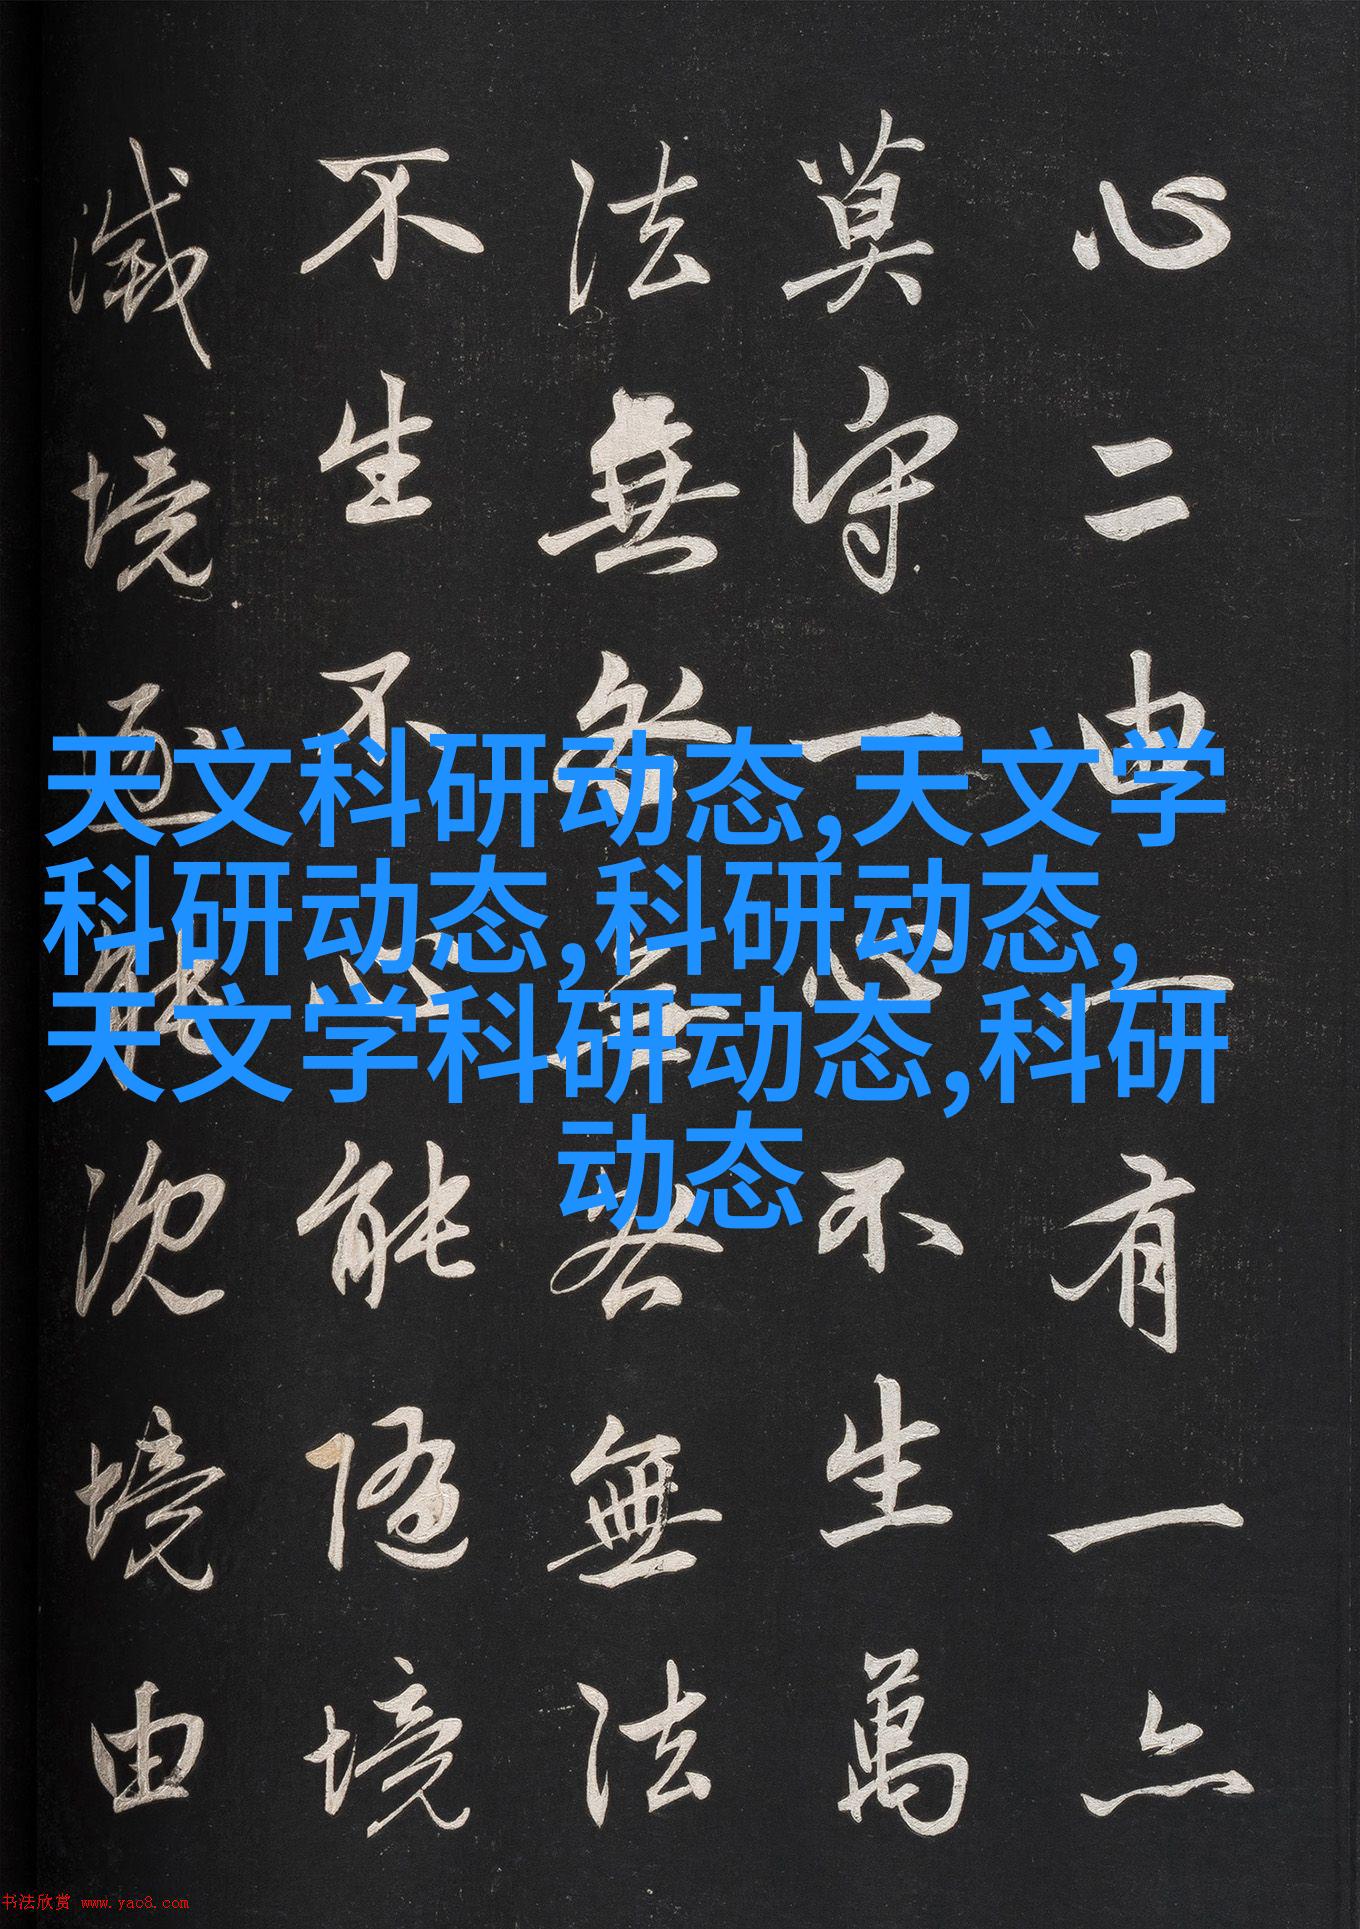 心二由一有一亦
莫守一心不生萬
法無咎無咎無法
不生不心能隨境
滅境逐能沉境由
天文科研动态,天文学
科研动态,科研动态,
天文学科研动态,科研
动态
书法欣赏 www.yac8.com